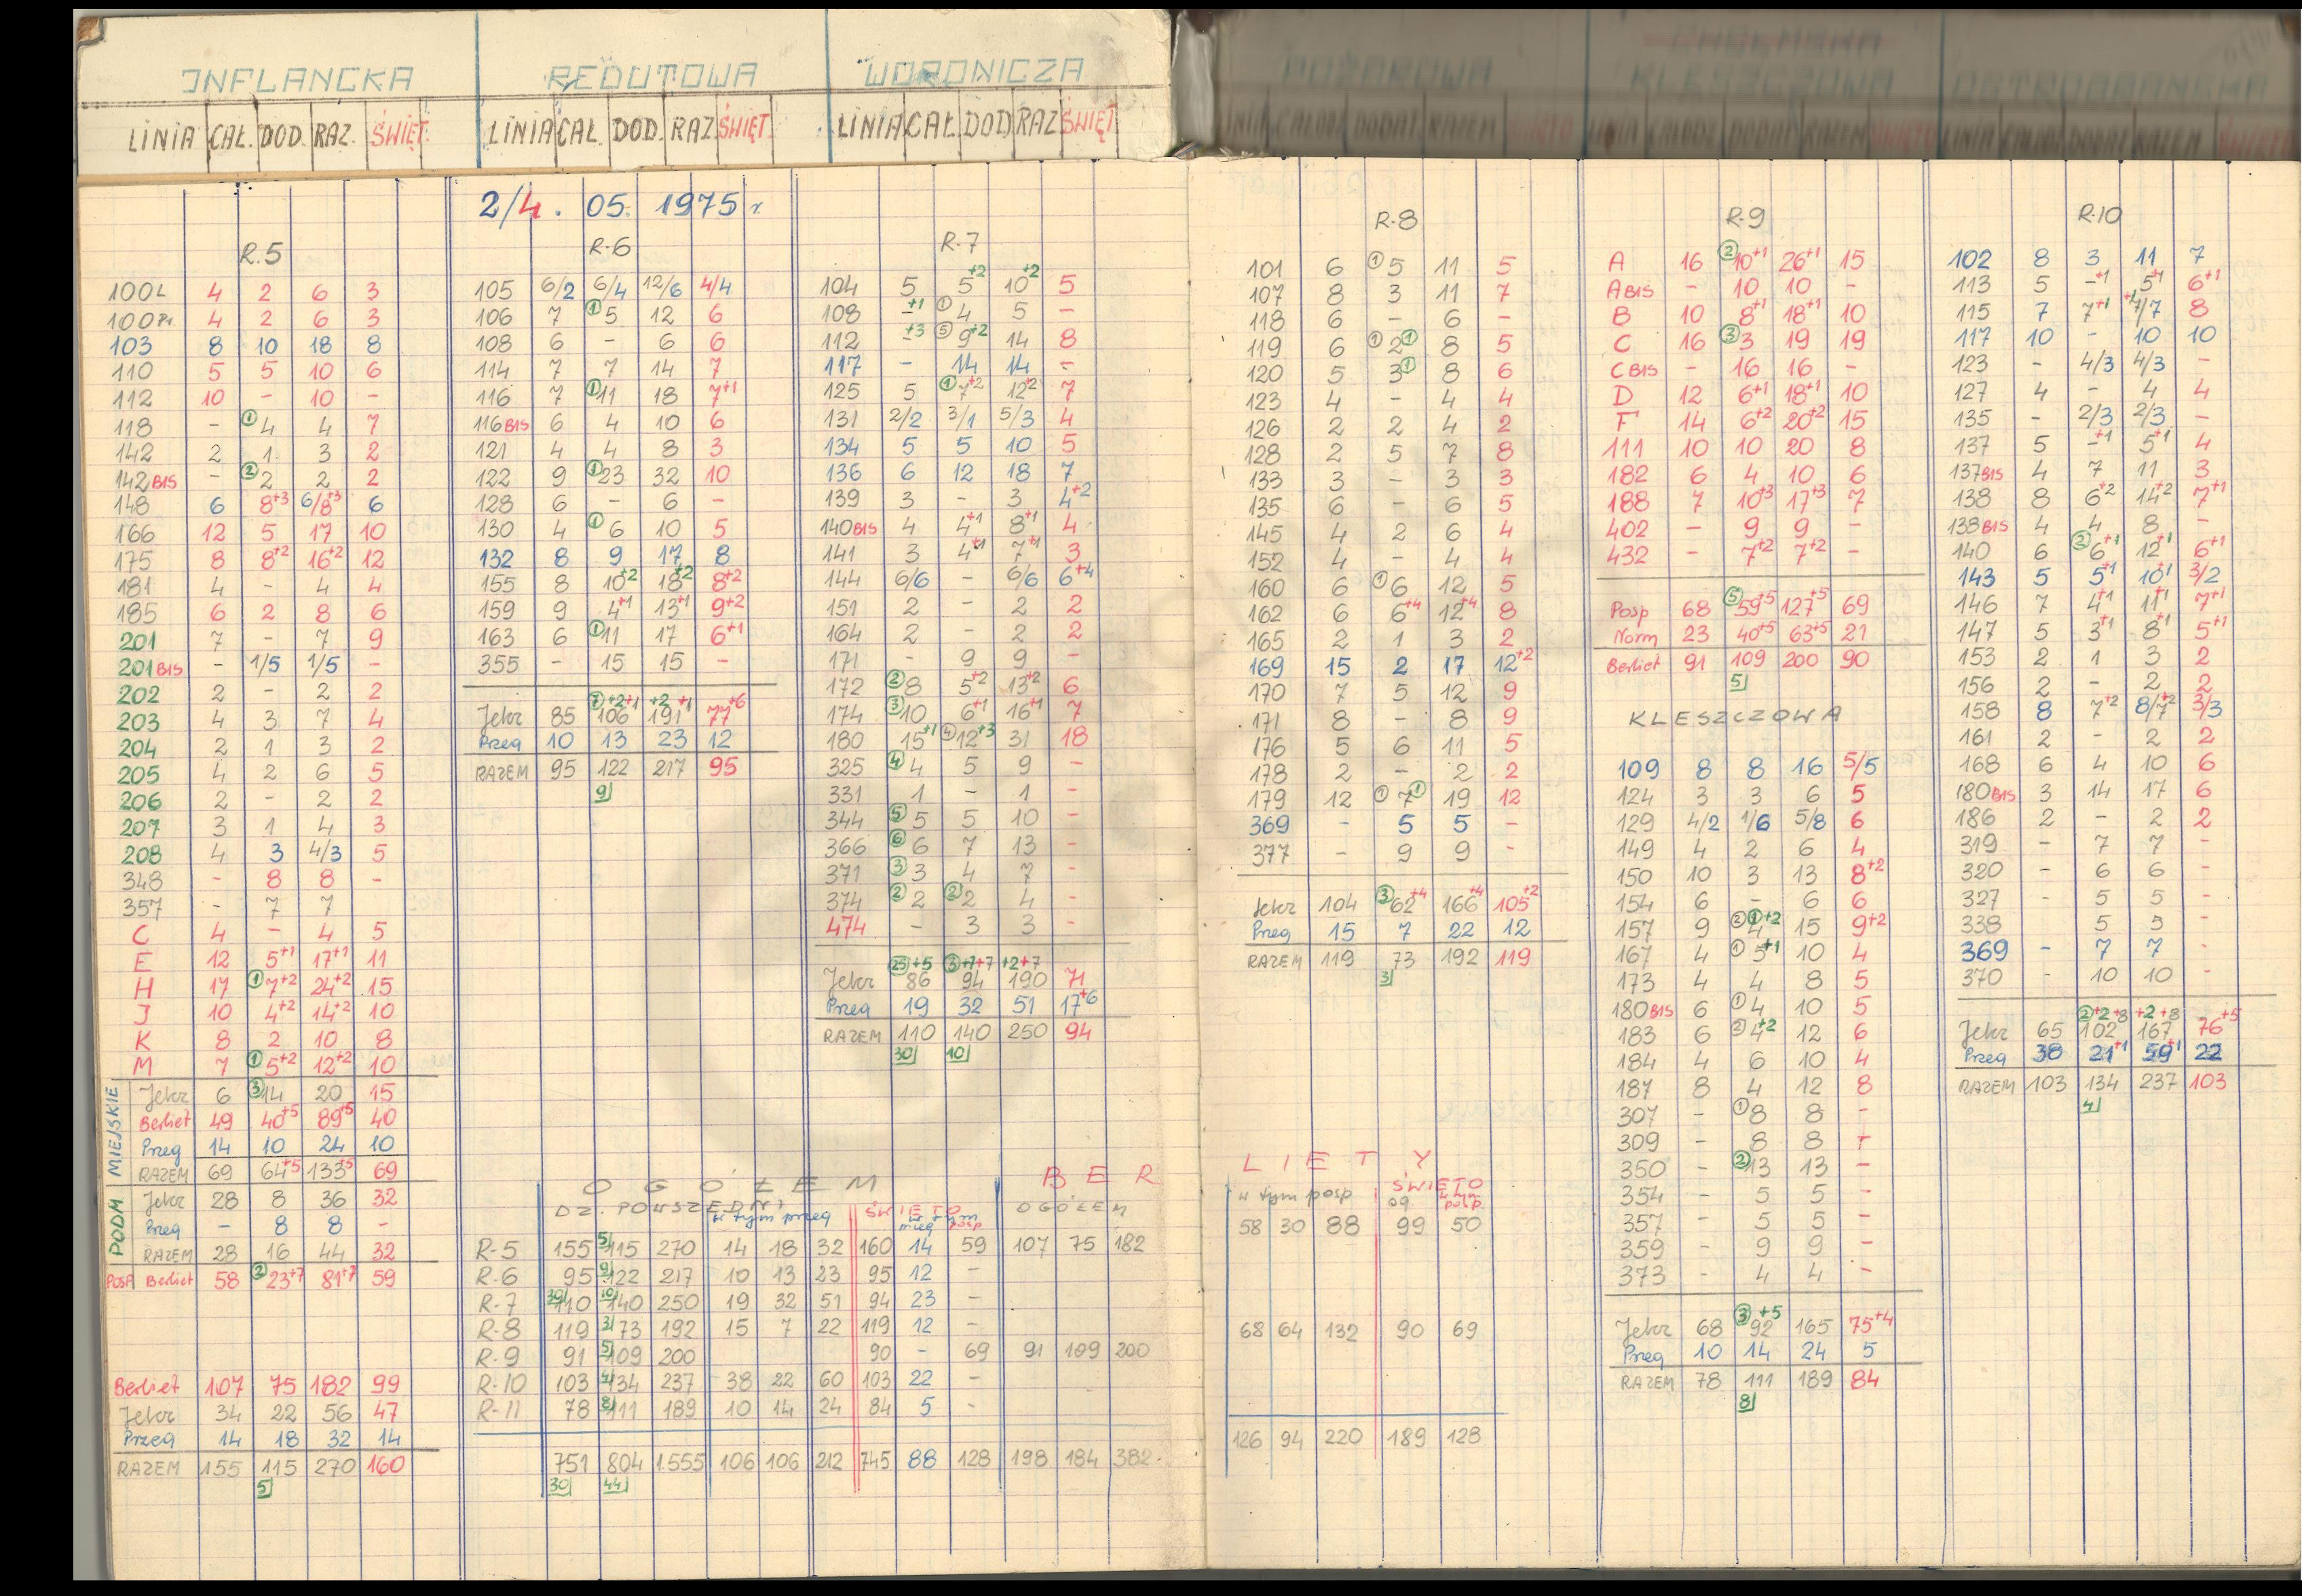 INFLANCKA
LINIA CAŁ. DOD. RAZ. ŚWIĘT.
R.5
100L 4 2 6 3
100Pr 4 2 6 3
103 8 10 18 8
110 5 5 10 6
112 10 - 10 -
118 - ①4 4 7
142 2 1 3 2
142 BIS - ②2 2 2
148 6 8+3 6/8+3 6
166 12 5 17 10
175 8 8+2 16+2 12
181 4 - 4 4
185 6 2 8 6
201 7 - 7 9
201 BIS - 1/5 1/5 -
202 2 - 2 2
203 4 3 7 4
204 2 1 3 2
205 4 2 6 5
206 2 - 2 2
207 3 1 4 3
208 4 3 4/3 5
348 - 8 8 -
357 - 7 7
C 4 - 4 5
E 12 5+1 17+1 11
H 17 ①7+2 24+2 15
J 10 4+2 14+2 10
K 8 2 10 8
M 7 ①5+2 12+2 10
MIEJSKIE
Jelcz 6 ③14 20 15
Berliet 49 40+5 89+5 40
Przeg 14 10 24 10
RAZEM 69 64+5 133+5 69
PODM
Jelcz 28 8 36 32
Przeg - 8 8 -
RAZEM 28 16 44 32
POSP Berliet 58 ②23+7 81+7 59
Berliet 107 75 182 99
Jelcz 34 22 56 47
Przeg 14 18 32 14
RAZEM 155 115 270 160
5
REDUTOWA
LINIA CAŁ. DOD. RAZ ŚWIĘT.
2/4. 05. 1975 r.
R-6
105 6/2 6/4 12/6 4/4
106 7 ①5 12 6
108 6 - 6 6
114 7 7 14 7
116 7 ①11 18 7+1
116 BIS 6 4 10 6
121 4 4 8 3
122 9 ①23 32 10
128 6 - 6 -
130 4 ①6 10 5
132 8 9 17 8
155 8 10+2 18+2 8+2
159 9 4+1 13+1 9+2
163 6 ①11 17 6+1
355 - 15 15 -
⑦+2+1 +2+1 +6
Jelcz 85 106 191 77
Przeg 10 13 23 12
RAZEM 95 122 217 95
9
WORONICZA
LINIA CAŁ DOD RAZ ŚWIĘT
R-7
104 5 5+2 10+2 5
108 -+1 ①4 5 -
112 -+3 ⑤9+2 14 8
117 - 14 14 -
125 5 ①7+2 12+2 7
131 2/2 3/1 5/3 4
134 5 5 10 5
136 6 12 18 7
139 3 - 3 4+2
140 BIS 4 4+1 8+1 4
141 3 4+1 7+1 3
144 6/6 - 6/6 6+4
151 2 - 2 2
164 2 - 2 2
171 - 9 9 -
172 ②8 5+2 13+2 6
174 ③10 6+1 16+1 7
180 15+1 ④12+3 31 18
325 ④4 5 9 -
331 1 - 1 -
344 ⑤5 5 10 -
366 ⑥6 7 13 -
371 ③3 4 7 -
374 ②2 ②2 4 -
474 - 3 3 -
㉕+5 ③+7+7 +2+7
Jelcz 86 94 190 71
Przeg 19 32 51 17+6
RAZEM 110 140 250 94
30 10
R-8
101 6 ①5 11 5
107 8 3 11 7
118 6 - 6 -
119 6 ①2① 8 5
120 5 3① 8 6
123 4 - 4 4
126 2 2 4 2
128 2 5 7 8
133 3 - 3 3
135 6 - 6 5
145 4 2 6 4
152 4 - 4 4
160 6 ①6 12 5
162 6 6+4 12+4 8
165 2 1 3 2
169 15 2 17 12+2
170 7 5 12 9
171 8 - 8 9
176 5 6 11 5
178 2 - 2 2
179 12 ①7① 19 12
369 - 5 5 -
377 - 9 9 -
Jelcz 104 ③62+4 166+4 105+2
Przeg 15 7 22 12
RAZEM 119 73 192 119
3
KLESZCZOWA
R-9
A 16 ②10+1 26+1 15
A BIS - 10 10 -
B 10 8+1 18+1 10
C 16 ③3 19 19
C BIS - 16 16 -
D 12 6+1 18+1 10
F 14 6+2 20+2 15
111 10 10 20 8
182 6 4 10 6
188 7 10+3 17+3 7
402 - 9 9 -
432 - 7+2 7+2 -
Posp 68 ⑤59+5 127+5 69
Norm 23 40+5 63+5 21
Berliet 91 109 200 90
5
KLESZCZOWA
109 8 8 16 5/5
124 3 3 6 5
129 4/2 1/6 5/8 6
149 4 2 6 4
150 10 3 13 8+2
154 6 - 6 6
157 9 ②①4+2 15 9+2
167 4 ①5+1 10 4
173 4 4 8 5
180 BIS 6 ①4 10 5
183 6 ②4+2 12 6
184 4 6 10 4
187 8 4 12 8
307 - ①8 8 -
309 - 8 8 -
350 - ②13 13 -
354 - 5 5 -
357 - 5 5 -
359 - 9 9 -
373 - 4 4 -
③+5
Jelcz 68 92 165 75+4
Przeg 10 14 24 5
RAZEM 78 111 189 84
8
R-10
102 8 3 11 7
113 5 -+1 5+1 6+1
115 7 7+1 +1/7 8
117 10 - 10 10
123 - 4/3 4/3 -
127 4 - 4 4
135 - 2/3 2/3 -
137 5 -+1 5+1 4
137 BIS 4 7 11 3
138 8 6+2 14+2 7+1
138 BIS 4 4 8 -
140 6 ②6+1 12+1 6+1
143 5 5+1 10+1 3/2
146 7 4+1 11+1 7+1
147 5 3+1 8+1 5+1
153 2 1 3 2
156 2 - 2 2
158 8 7+2 8/7+2 3/3
161 2 - 2 2
168 6 4 10 6
180 BIS 3 14 17 6
186 2 - 2 2
319 - 7 7 -
320 - 6 6 -
327 - 5 5 -
338 5 5 -
369 - 7 7 -
370 - 10 10 -
②+2+8 +2+8
Jelcz 65 102 167 76+5
Przeg 38 21+1 59+1 22
RAZEM 103 134 237 103
4
OGÓŁEM BERLIETY
DZ. POWSZEDNI w tym przeg ŚWIĘTO w tym przeg posp OGÓŁEM w tym posp ŚWIĘTO og w tym posp.
R-5 155 5 115 270 14 18 32 160 14 59 107 75 182 58 30 88 99 50
R-6 95 9 122 217 10 13 23 95 12 -
R-7 30 110 10 140 250 19 32 51 94 23 -
R-8 119 3 73 192 15 7 22 119 12 -
R-9 91 5 109 200 90 - 69 91 109 200 68 64 132 90 69
R-10 103 4 134 237 38 22 60 103 22 -
R-11 78 8 111 189 10 14 24 84 5 -
751 804 1.555 106 106 212 745 88 128 198 184 382 126 94 220 189 128
30 44